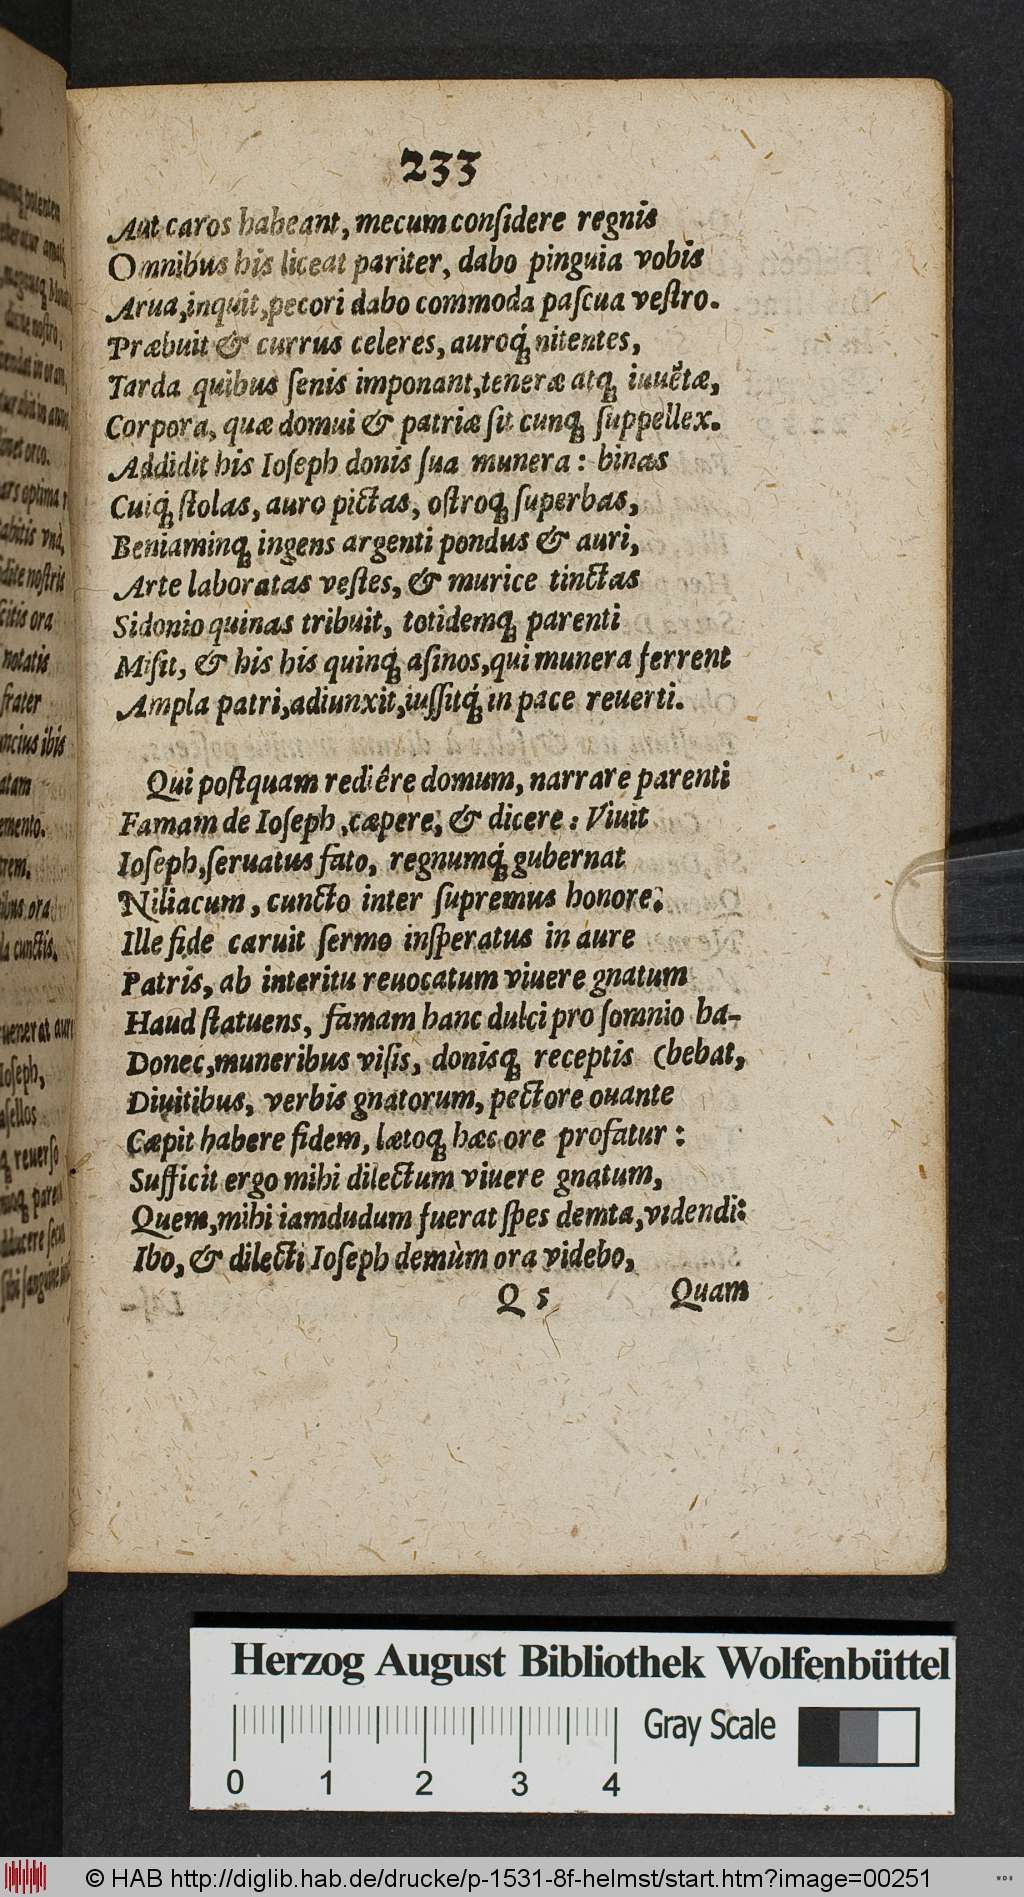 233
Aut caros habeant, mecum conſidere regnis
Omnibus his liceat pariter, dabo pinguia vobis
Arua, inquit, pecori dabo commoda paſcua veſtro.
Præbuit & currus celeres, auroq́; nitentes,
Tarda quibus ſenis imponant, teneræ atq; iuuẽtæ,
Corpora, quæ domui & patriæ ſit cunq; ſuppellex.
Addidit his Ioſeph donis ſua munera: binas
Cuiq́; ſtolas, auro pictas, oſtroq; ſuperbas,
Beniaminq; ingens argenti pondus & auri,
Arte laboratas veſtes, & murice tinctas
Sidonio quinas tribuit, totidemq; parenti
Miſit, & his his quinq́; aſinos, qui munera ferrent
Ampla patri, adiunxit, iuſſitq́; in pace reuerti.
Qui poſtquam rediêre domum, narrare parenti
Famam de Ioſeph, cæpere, & dicere: Viuit
Ioſeph, ſeruatus fato, regnumq́; gubernat
Niliacum, cuncto inter ſupremus honore;
Ille fide caruit ſermo inſperatus in aure
Patris, ab interitu reuocatum viuere gnatum
Haud ſtatuens, famam hanc dulci pro ſomnio ha-
Donec, muneribus viſis, donisq; receptis (bebat,
Diuitibus, verbis gnatorum, pectore ouante
Cæpit habere fidem, lætoq; hæc ore profatur:
Sufficit ergo mihi dilectum viuere gnatum,
Quem, mihi iamdudum fuerat ſpes demta, videndi:
Ibo, & dilecti Ioſeph demùm ora videbo,
Q 5 Quam
Herzog August Bibliothek Wolfenbüttel
Gray Scale
0 1 2 3 4
© HAB http://diglib.hab.de/drucke/p-1531-8f-helmst/start.htm?image=00251